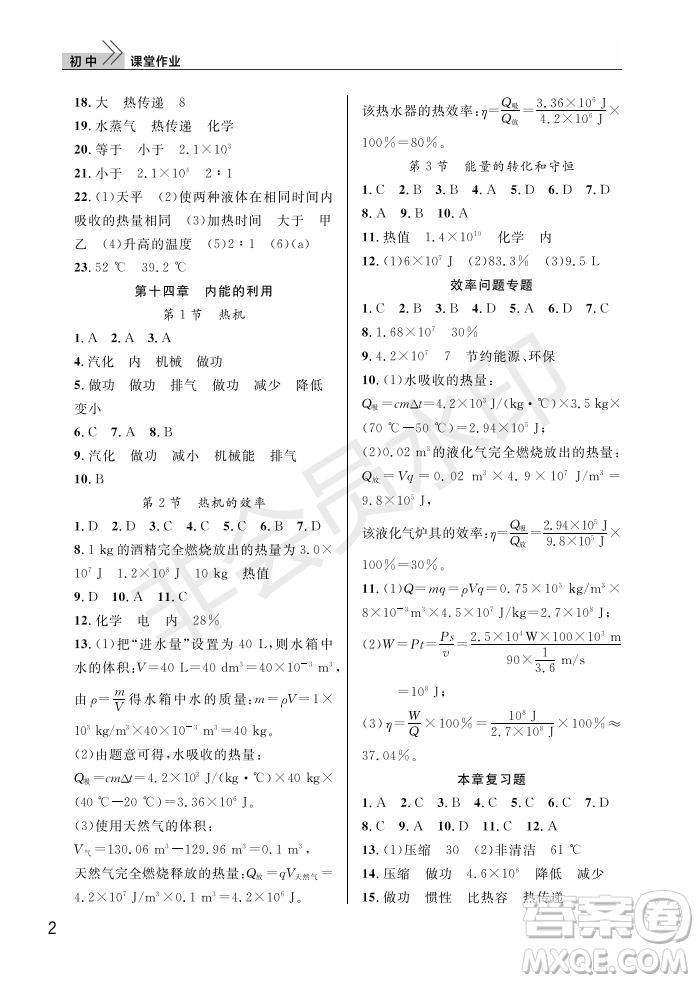 初中 课堂作业
18.大 热传递 8
19.水蒸气 热传递 化学
20.等于 小于 2.1×10³
21.小于 2.1×10⁴ 2∶1
22.(1)天平 (2)使两种液体在相同时间内
吸收的热量相同 (3)加热时间 大于 甲
乙 (4)升高的温度 (5)2∶1 (6)(a)
23.52 ℃ 39.2 ℃
第十四章 内能的利用
第1节 热机
1.A 2.A 3.A
4.汽化 内 机械 做功
5.做功 做功 排气 做功 减少 降低
变小
6.C 7.A 8.B
9.汽化 做功 减小 机械能 排气
10.B
第2节 热机的效率
1.D 2.D 3.B 4.C 5.D 6.B 7.D
8.1 kg的酒精完全燃烧放出的热量为3.0×
10⁷ J 1.2×10⁸ J 10 kg 热值
9.D 10.A 11.C
12.化学 电 内 28%
13.(1)把“进水量”设置为40 L,则水箱中
水的体积:V=40 L=40 dm³=40×10⁻³ m³,
由ρ=m/V得水箱中水的质量:m=ρV=1×
10³ kg/m³×40×10⁻³ m³=40 kg。
(2)由题意可得,水吸收的热量:
Q吸=cmΔt=4.2×10³ J/(kg·℃)×40 kg×
(40 ℃-20 ℃)=3.36×10⁶ J。
(3)使用天然气的体积:
V气=130.06 m³-129.96 m³=0.1 m³,
天然气完全燃烧释放的热量:Q放=qV天然气=
4.2×10⁷ J/m³×0.1 m³=4.2×10⁶ J。
该热水器的热效率:η=Q吸/Q放=3.36×10⁶ J/4.2×10⁶ J×
100%=80%。
第3节 能量的转化和守恒
1.C 2.B 3.B 4.D 5.D 6.B 7.D
8.A 9.B 10.A
11.热值 1.4×10¹⁰ 化学 内
12.(1)6×10⁷ J (2)83.3% (3)9.5 L
效率问题专题
1.C 2.B 3.D 4.D 5.C 6.B 7.C
8.1.68×10⁷ 30%
9.4.2×10⁷ 7 节约能源、环保
10.(1)水吸收的热量:
Q吸=cmΔt=4.2×10³ J/(kg·℃)×3.5 kg×
(70 ℃-50 ℃)=2.94×10⁵ J。
(2)0.02 m³的液化气完全燃烧放出的热量:
Q放=Vq=0.02 m³×4.9×10⁷ J/m³=
9.8×10⁵ J,
该液化气炉具的效率:η=Q吸/Q放=2.94×10⁵ J/9.8×10⁵ J×
100%=30%。
11.(1)Q=mq=ρVq=0.75×10³ kg/m³×
8×10⁻³ m³×4.5×10⁷ J/kg=2.7×10⁸ J;
(2)W=Pt=Ps/v=2.5×10⁴ W×100×10³ m/(90×1/3.6 m/s)
=10⁸ J;
(3)η=W/Q×100%=10⁸ J/2.7×10⁸ J×100%≈
37.04%。
本章复习题
1.A 2.C 3.C 4.A 5.B 6.D 7.D
8.C 9.C 10.C 11.C 12.A
13.(1)压缩 30 (2)非清洁 61 ℃
14.压缩 做功 4.6×10⁶ 降低 减少
15.做功 惯性 比热容 热传递
2
非会员水印
答案圈